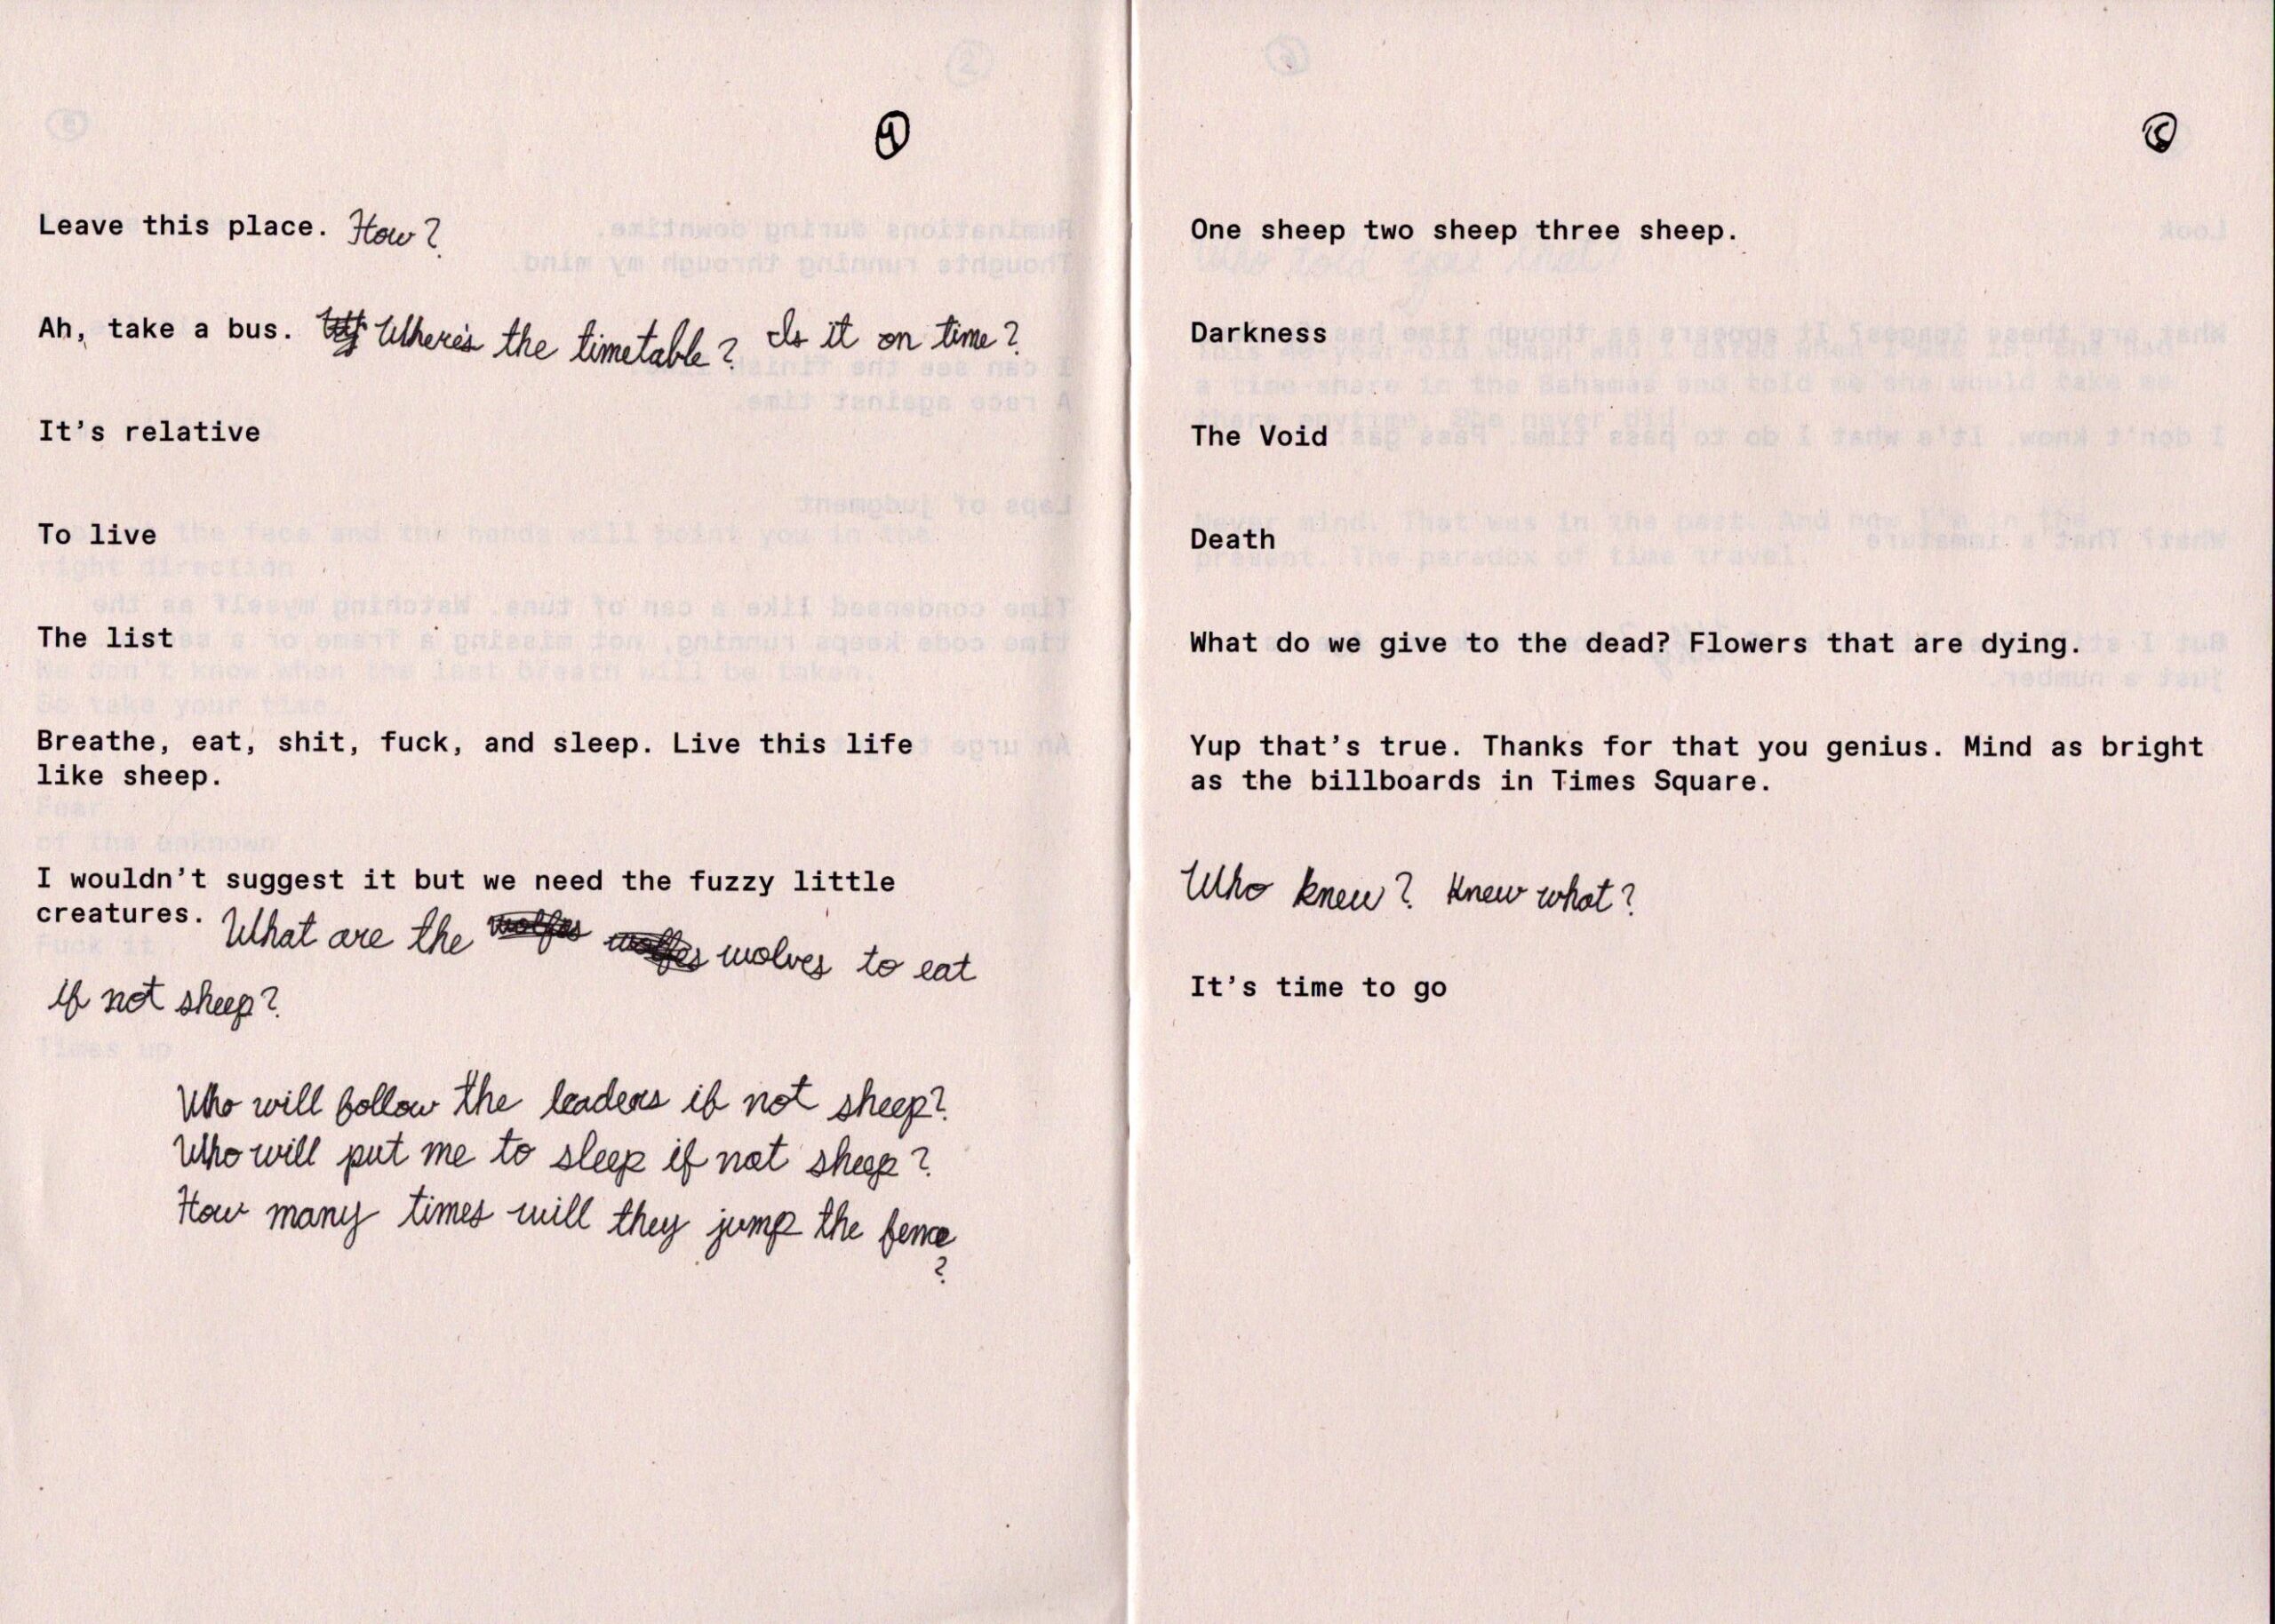 4
Leave this place. How?
Ah, take a bus. Where's the timetable? Is it on time?
It's relative
To live
The list
Breathe, eat, shit, fuck, and sleep. Live this life
like sheep.
I wouldn't suggest it but we need the fuzzy little
creatures. What are the wolfes wolfes wolves to eat
if not sheep?
Who will follow the leaders if not sheep?
Who will put me to sleep if not sheep?
How many times will they jump the fence
?
One sheep two sheep three sheep.
Darkness
The Void
Death
What do we give to the dead? Flowers that are dying.
Yup that's true. Thanks for that you genius. Mind as bright
as the billboards in Times Square.
Who knew? Knew what?
It's time to go